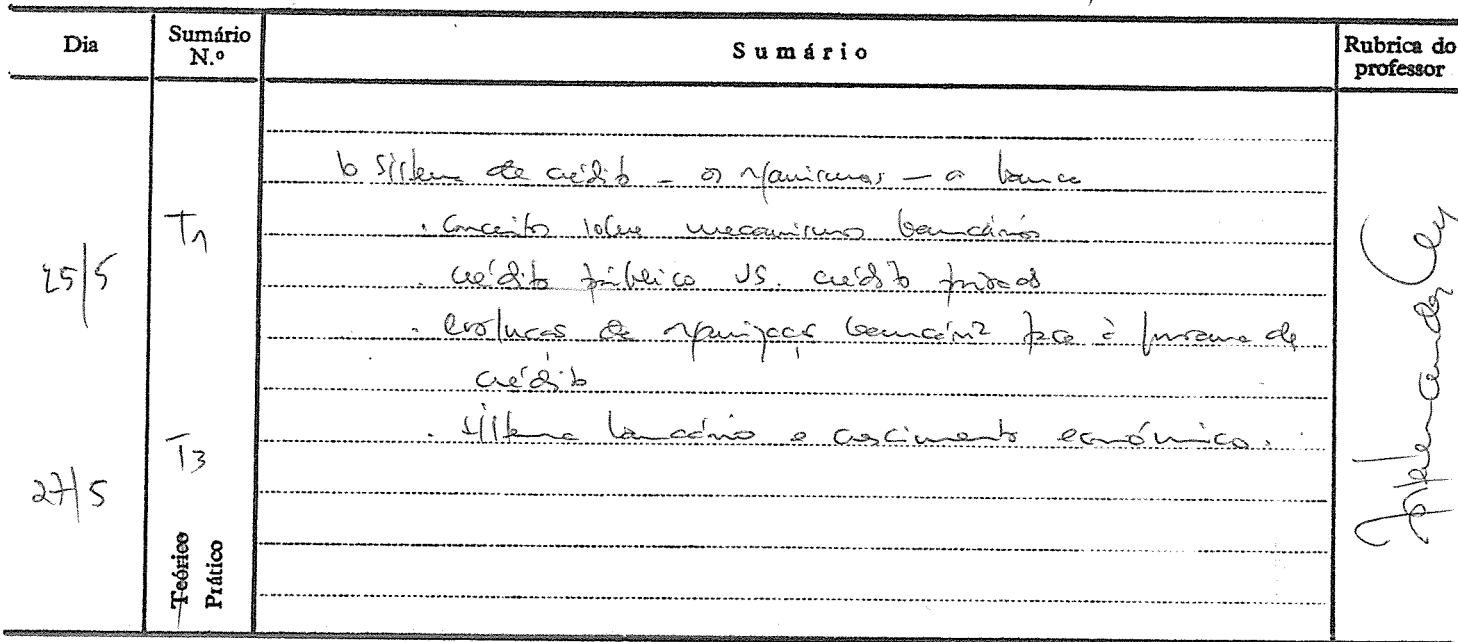 Dia
Sumário N.º
Sumário
Rubrica do professor
25/5
T1
O Sistema de crédito - os organismos - a banca
. Conceitos sobre mecanismos bancários
. crédito público vs. crédito privado
. evolução da organização bancária face à procura de
crédito
. sistema bancário e crescimento económico.
27/5
T3
Teórico
Prático